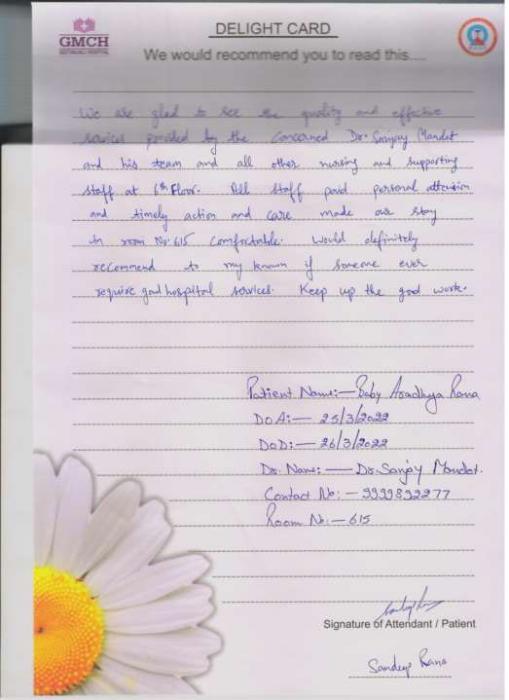 DELIGHT CARD
GMCH
We would recommend you to read this....
We are glad to see the quality and effective
services provided by the concerned Dr. Sanjay Mandot
and his team and all other nursing and supporting
staff at 6th Floor. All staff paid personal attension
and timely action and care made our stay
in room No. 615 comfortable. Would definitely
recommend to my known if someone ever
require good hospital services. Keep up the good work.
Patient Name:— Baby Aradhya Rana
DoA:— 25/3/2022
DoD:— 26/3/2022
Dr. Name:— Dr. Sanjay Mandot.
Contact No:—
Room No:— 615
Signature of Attendant / Patient
Sandeep Rana